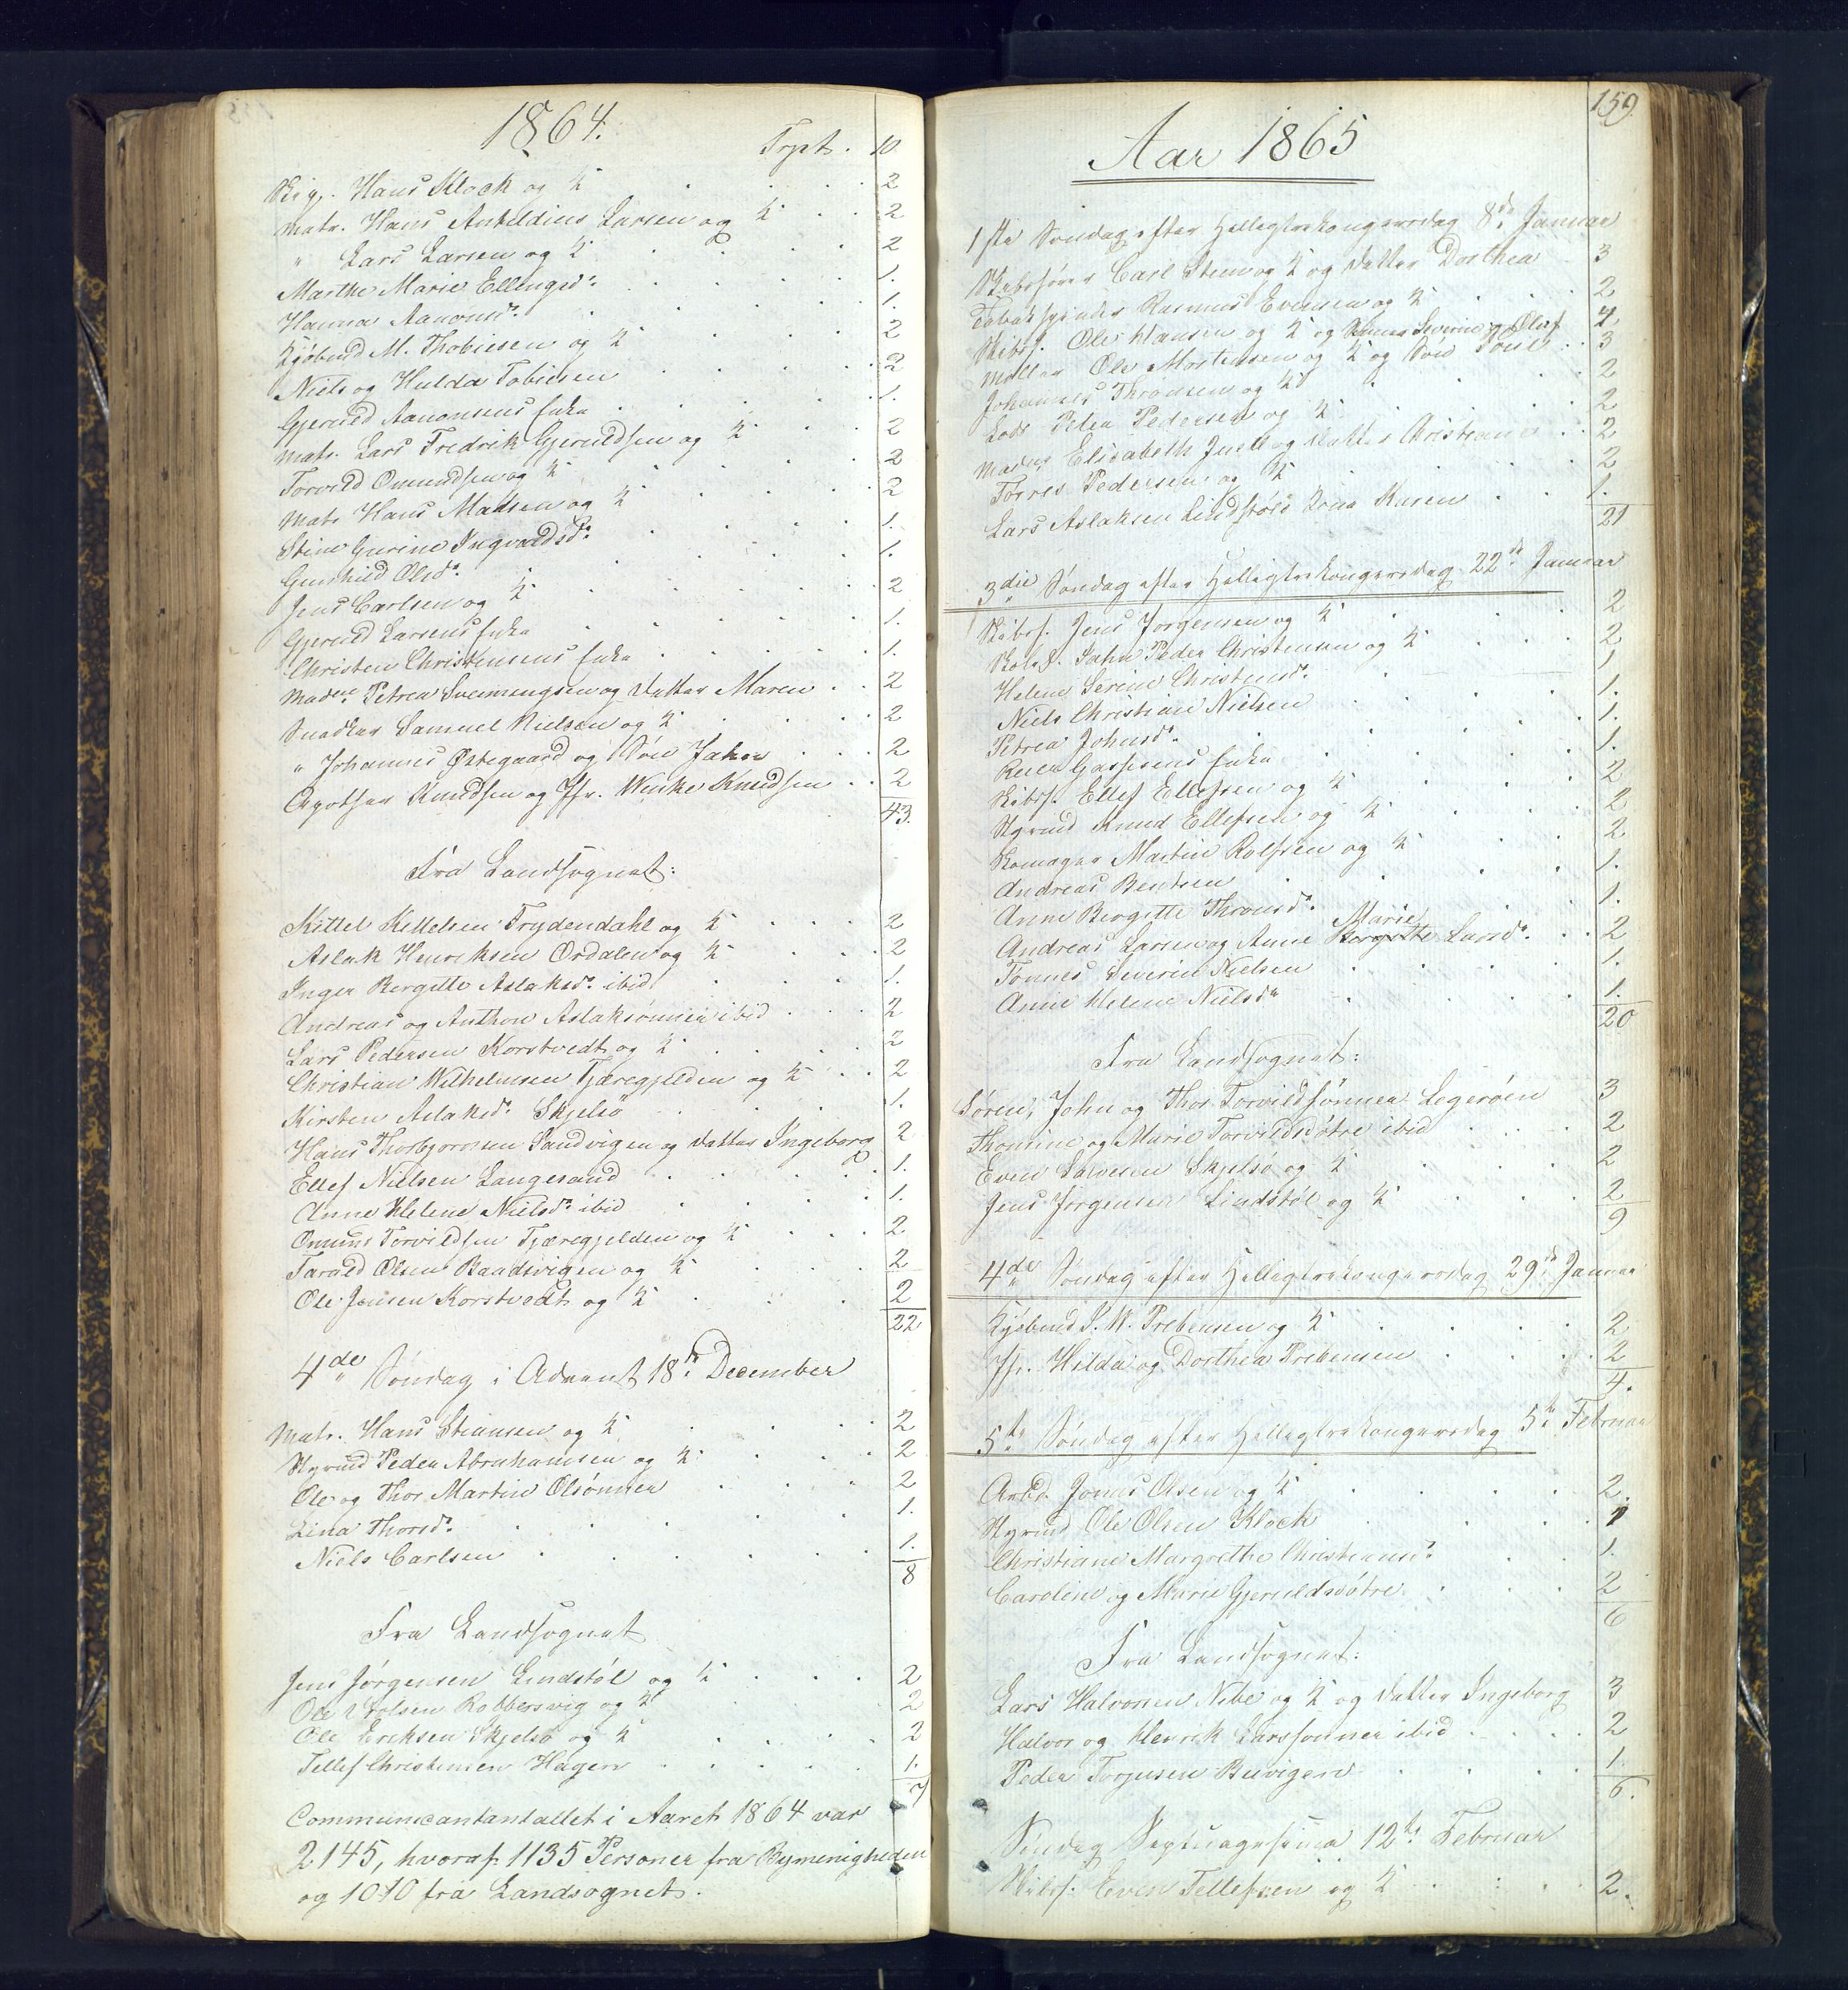 1864.
Trpt. 10
Skip. Hans Klock og K 2
Matr. Hans Anbildius Larsen og K 2
" Lars Larsen og K 2
Marthe Marie Ellingsd. 1.
Hanna Aanonsd. 1.
Kjøbmd M. Thobiesen og K 2
Niels og Hulda Tobiesen 2
Gjeruld Aanonsens Enke 1.
Matr. Lars Fredrik Gjeruldsen og K 2
Torvild Omundsen og K 2
Matr Hans Madsen og K 2
Stine Gurine Ingvaldsd. 1.
Gunhild Olsd. 1.
Jens Carlsen og K 2
Gjeruld Larsens Enke 1.
Christen Christensens Enke 1.
Made. Petrea Svenningsen og Datter Maren 2
Snedker Samuel Nielsen og K 2
" Johannes Østegaard og Søn Jakob 2
Apothek Knudsen og Jfr. Wenke Knudsen 2
43.
Fra Landsognet:
Kittel Kittelsen Trydendahl og K 2
Aslak Henriksen Ordalen og K 2
Inger Bergitte Aslaksd. ibid 1.
Andreas og Anthon Aslaksønner ibid 2
Lars Pedersen Korstvedt og K 2
Christian Wilhelmsen Tjæregjelden og K 2
Kirsten Aslaksd. Skjelsø 1.
Hans Thorbjørnsen Sandvigen og Datter Ingeborg 2
Ellef Nielsen Langesand 1.
Anne Helene Nielsd. ibid 1.
Omund Torvildsen Tjæregjelden og K 2
Tarald Olsen Baadsvigen og K 2
Ole Jensen Korstvedt og K 2
22
4de Søndag i Advent 18de December
Matr. Hans Stiansen og K 2
Styrmd Peder Abrahamsen og K 2
Ole og Thor Martin Olsønner 2
Lina Thorsd. 1.
Niels Carlsen 1.
8
Fra Landsognet
Jens Jørgensen Lindstøl og K 2
Ole Olsen Robbersvig og K 2
Ole Eriksen Skjelsø og K 2
Tellef Christensen Hagen 1.
7
Communicantantallet i Aaret 1864 var
2145, hvoraf 1135 Personer fra Bymenigheden
og 1010 fra Landsognet.
159
Aar 1865
1ste Søndag efter Helligtrekongersdag 8de Januar
Skibsfører Carl Steen og K og Datter Dorthea 3
Tobakspinder Rasmus Evensen og K 2
Skibsf. Ole Hansen og K og Sønner Severin og Oluf 4
Møller Ole Mortensen og K og Søn 3
Johannes Thronsen og K 2
Lods Peder Pedersen og K 2
Madme Elisabeth Juell og Datter Christiane 2
Torres Pedersen og K 2
Lars Aslaksen Lindstøls Kone Karen 1.
21
3die Søndag efter Helligtrekongersdag 22de Januar
Skibsf. Jens Jørgensen og K 2
Peder Christensen og K 2
Helene Serine Christensd. 1
Niels Christian Nielsen 1.
Petrea Johnsd. 1.
Reier Gassesens Enke 1.
Skibsf. Ellef Ellefsen og K 2
Styrmd Knud Ellefsen og K 2
Skomager Martin Rolfsen og K 2
Andreas Bentsen 1.
Anne Bergitte Thronsd. 1.
Andreas Larsen og Anne Bergitte Marie Larsd. 2
Tønnes Severin Nielsen 1.
Anne Helene Nielsd. 1.
20
Fra Landsognet:
Søren, John og Thor Torvildsønner Legerøen 3
Thomine og Marie Torvildsdøtre ibid 2
Even Salvesen Skjelsø og K 2
Jens Jørgensen Lindstøl og K 2
9
4de Søndag efter Helligtrekongersdag 29de Januar
Kjøbmd P. W. Prebensen og K 2
Jfr. Hilda og Dorthea Prebensen 2
4.
5te Søndag efter Helligtrekongersdag 5te Februar
Arbd. Jonas Olsen og K 2.
Styrmd Ole Olsen Klock 1
Christiane Margrethe Christensd. 1.
Caroline og Marie Gjeruldsdøtre 2
6
Fra Landsognet:
Lars Halvorsen Nebe og K og Datter Ingeborg 3
Halvor og Henrik Larssønner ibid 2
Peder Torjusen Buvigen 1.
6.
Søndag Septuagesima 12te Februar
Skibsf. Even Tellefsen og K 2.